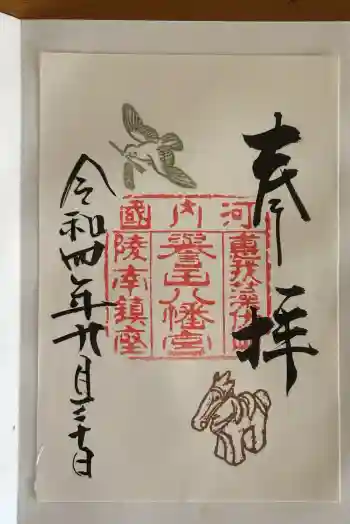 奉拝
河内國
惠我藻伏岡
譽田八幡宮
陵南鎮座
令和四年九月三十日